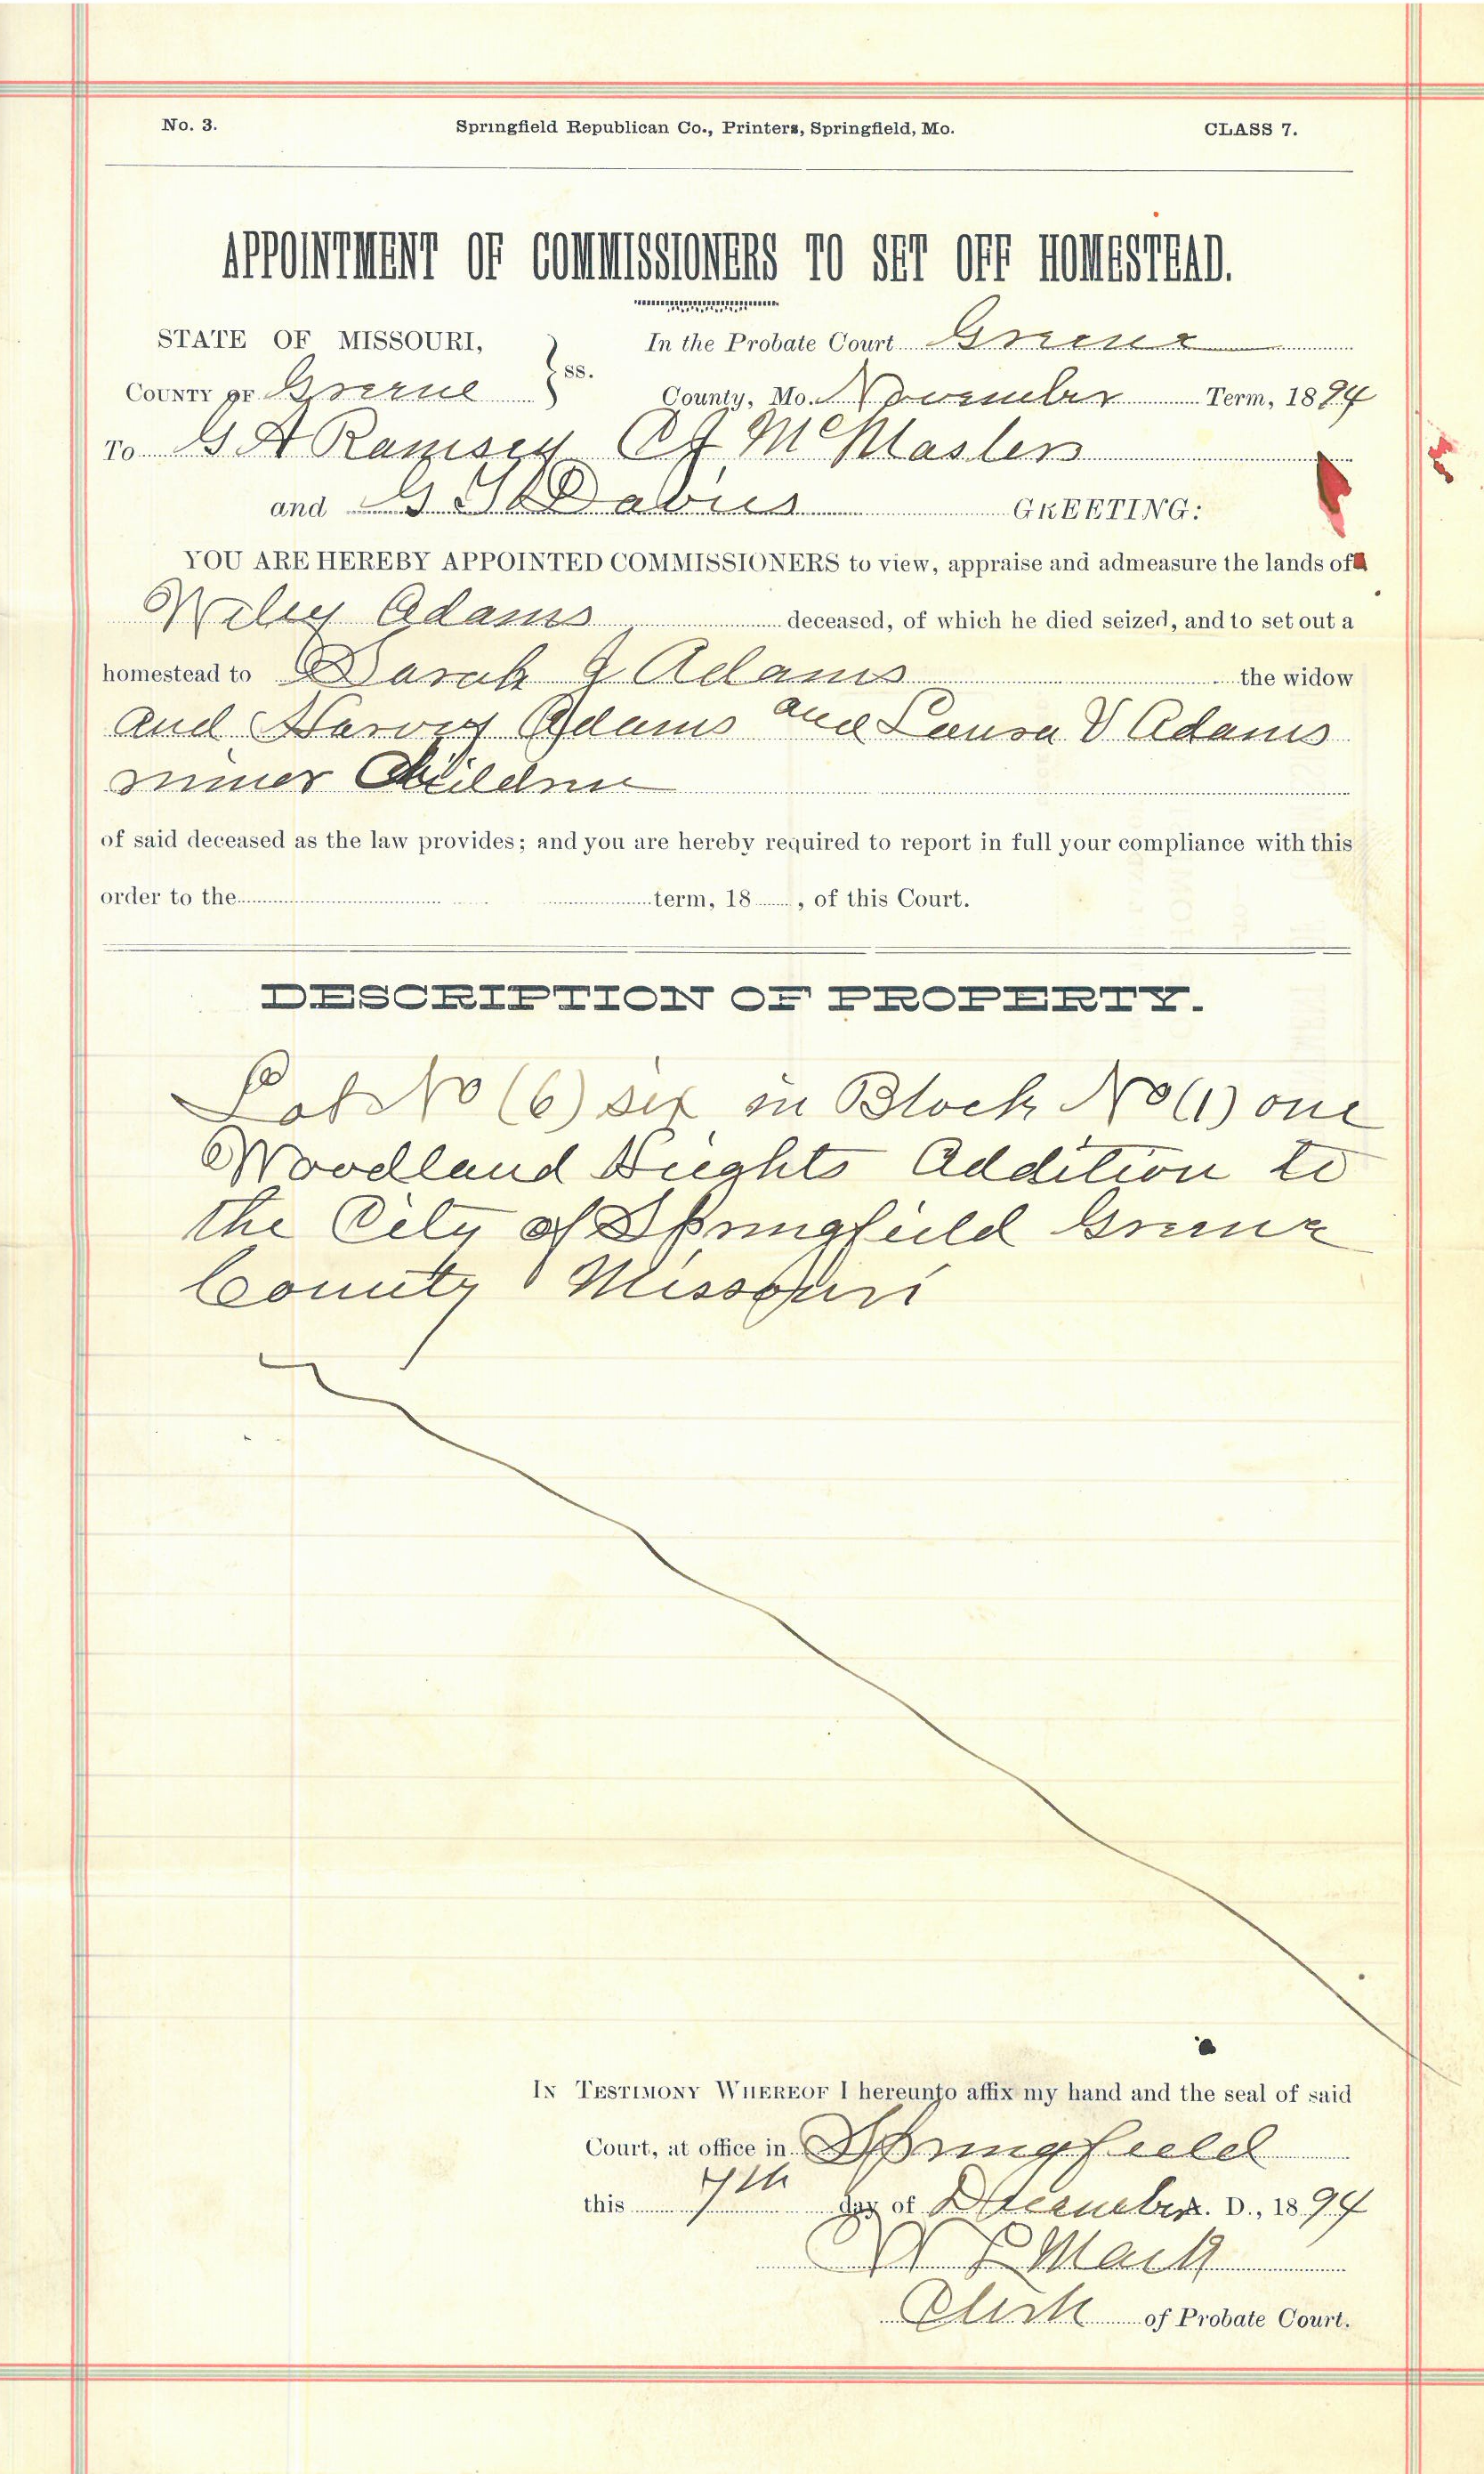 No. 3. Springfield Republican Co., Printers, Springfield, Mo. CLASS 7.
APPOINTMENT OF COMMISSIONERS TO SET OFF HOMESTEAD.
STATE OF MISSOURI, In the Probate Court Greene
COUNTY OF Greene } ss. County, Mo. November Term, 1894
To G A Ramsey C J McMasters
and G Davies GREETING:
YOU ARE HEREBY APPOINTED COMMISSIONERS to view, appraise and admeasure the lands of
Wiley Adams deceased, of which he died seized, and to set out a
homestead to Sarah J Adams the widow
and Harvey Adams and Laura V Adams
minor Children
of said deceased as the law provides; and you are hereby required to report in full your compliance with this
order to the term, 18 , of this Court.
DESCRIPTION OF PROPERTY.
Lot No (6) six in Block No (1) one
Woodland Heights Addition to
the City of Springfield Greene
County Missouri
IN TESTIMONY WHEREOF I hereunto affix my hand and the seal of said
Court, at office in Springfield
this 7th day of December A. D., 1894
W L Mack
Clerk of Probate Court.